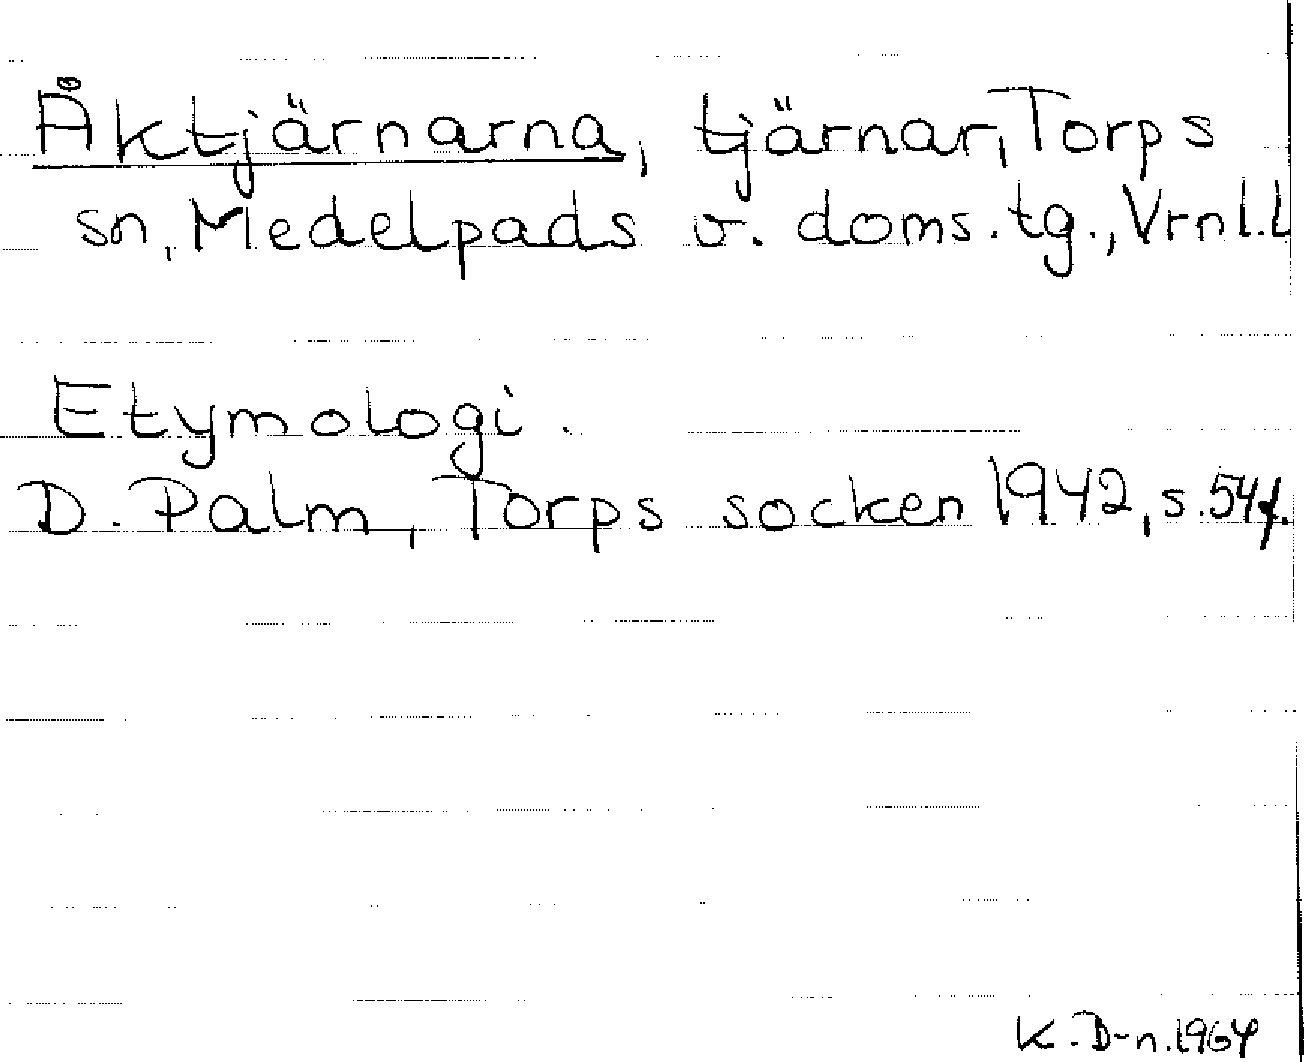 Åktjärnarna, tjärnar, Torps
sn, Medelpads v. doms. tg., Vrnl. L
Etymologi.
D. Palm, Torps socken 1942, s. 54f.
K. D-n. 1964